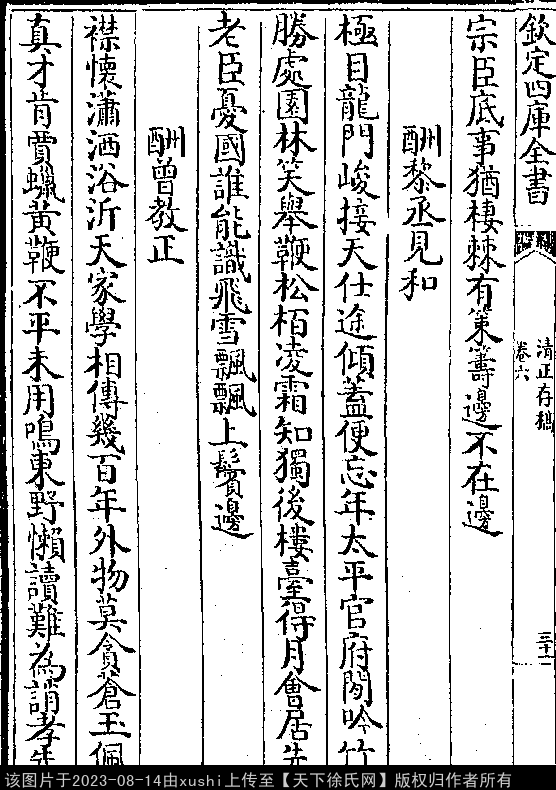 欽定四庫全書
清正存稿
卷六
宗臣底事猶棲棘有策籌邊不在邊
酬黎丞見和
極目龍門峻接天仕途傾蓋便忘年太平官府閒吟竹
勝處園林笑舉鞭松栢凌霜知獨後樓臺得月會居先
老臣憂國誰能識飛雪飄飄上鬢邊
酬曾教正
襟懷瀟洒浴沂天家學相傳幾百年外物莫貪蒼玉佩
真才肯賈蠟黃鞭不平未用鳴東野懶讀難為誚孝先
该图片于2023-08-14由xushi上传至【天下徐氏网】版权归作者所有